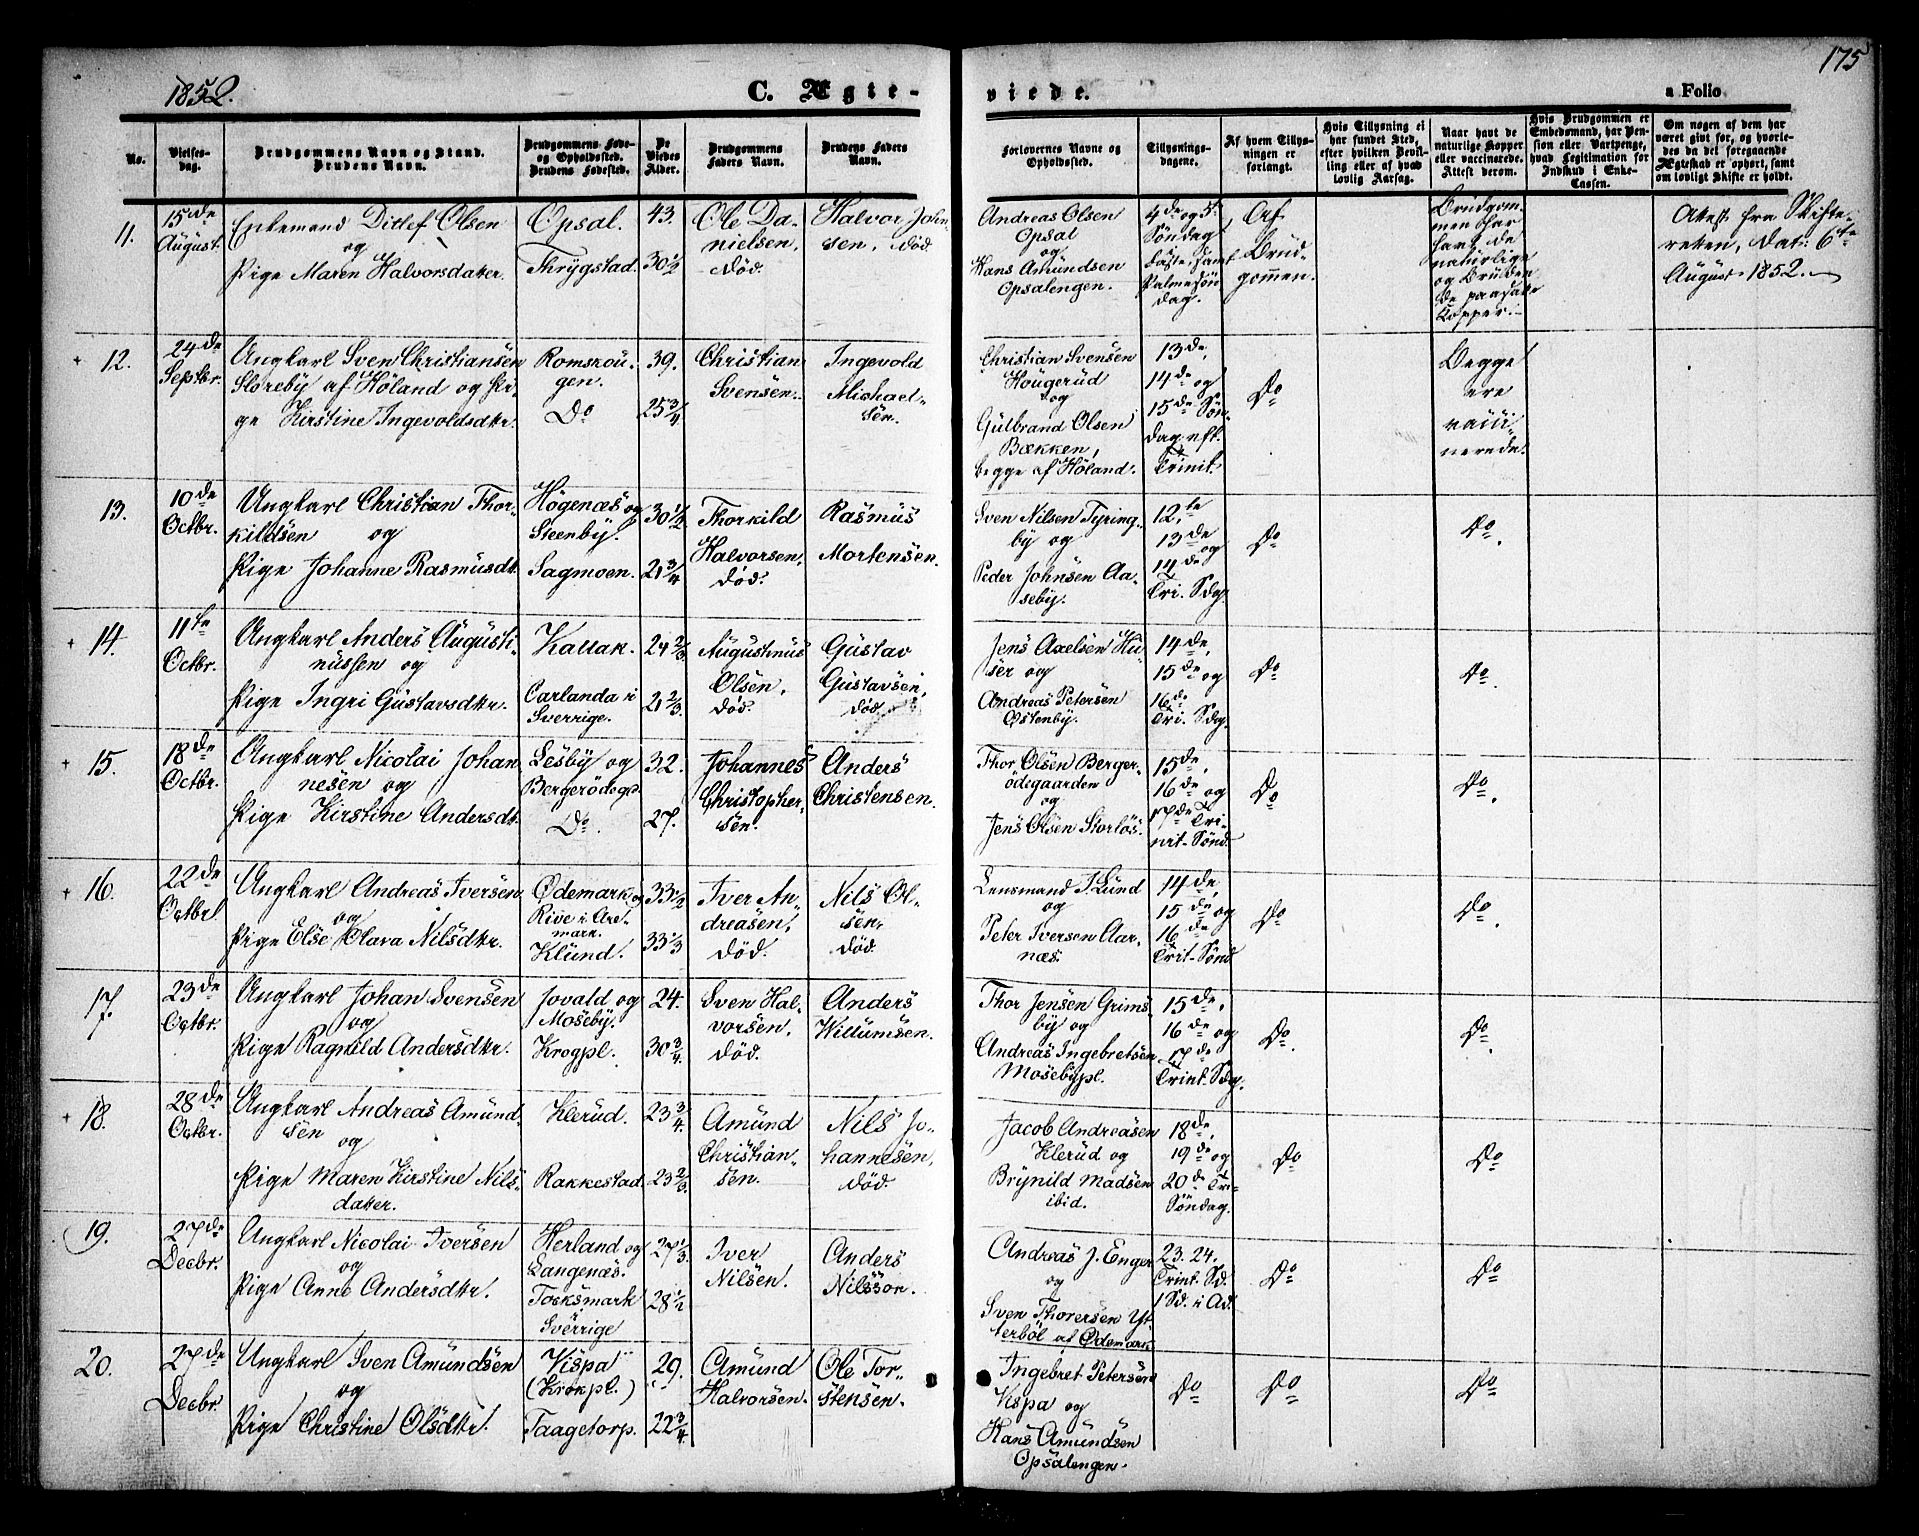 1852.
C. Ægte-
viede.
175
a Folio
No.
Vielses-
dag.
Brudgommens Navn og Stand.
Brudens Navn.
Brudgommens Føde-
og Opholdssted.
Brudens Fødested.
De
Viedes
Alder.
Brudgommens
Faders Navn.
Brudens Faders
Navn.
Forlovernes Navne og
Opholdssted.
Tillysnings-
dagene.
Af hvem Tillys-
ningen er
forlangt.
Hvis Tillysning ei
har fundet Sted,
efter hvilken Bevil-
ling eller af hvad
lovlig Aarsag.
Naar havt de
naturlige Kopper
eller vaccinerede.
Attest derom.
Hvis Brudgommen er
Embedsmand, har Pen-
sion eller Vartpenge,
hvad Legitimation for
Indskud i Enke-
Cassen.
Om nogen af dem har
været gift før, og hvorle-
des da det foregaaende
Ægteskab er ophørt, samt
om lovligt Skifte er holdt.
11.
15de
August.
Enkemand Ditlef Olsen
og
Pige Maren Halvorsdatter.
Opsal.
Thrygstad.
43.
30 1/2
Ole Da-
nielsen,
død.
Halvor John-
sen, død
Andreas Olsen
Opsal
og
Hans Amundsen
Opsalengen.
4de og 5te
Søndag i
Faste, samt
Palmesøn
dag.
Af
Brud-
gommen.
Brudgom-
men har
havt de
naturlige
og Bruden
de paasatte
Kopper.
Attest fra Skifte-
retten, dat: 6te
August 1852.
+ 12.
24de
Septbr.
Ungkarl Sven Christiansen
Storeby af Höland og Pi-
ge Kirstine Ingevoldsdtr.
Romskou-
gen.
Do
39.
25 3/4
Christian
Svensen.
Ingevold
Michael-
sen.
Christian Svensen
Hougerud
og
Gulbrand Olsen
Bækken,
begge af Höland.
13de,
14de og
15de Søn-
dag eft.
Trinit.
Do
Begge
ere
vacci-
nerede.
13.
10de
Octbr.
Ungkarl Christian Thor-
kildsen og
Pige Johanne Rasmusdt.
Högenæs og
Steenby.
Sagmoen.
30 1/2
21 3/4
Thorkild
Halvorsen,
død.
Rasmus
Mortensen.
Sven Nilsen Tyring-
by og
Peder Johnsen Aa-
seby.
12te
13de
14de og
Tri. Sdg.
Do
Do.
+ 14.
11te
Octbr.
Ungkarl Anders Augusti-
nussen og
Pige Ingri Gustavsdtr.
Kallak.
Carlanda i
Sverrige.
24 2/3
21 2/3.
Augustinus
Olsen,
død.
Gustav
Gustavsen,
død.
Jens Axelsen Hu-
ser og
Andreas Petersen
Østenby.
14de,
15de og
16de
Tri. Sdg.
Do
Do.
+ 15.
18de
Octbr.
Ungkarl Nicolai Johan
nesen og
Pige Kirstine Andersdt.
Lesby og
Bergerödegd.
Do.
32.
27.
Johannes
Christopher-
sen.
Anders
Christensen.
Thor Olsen Berger-
ödegaarden
og
Jens Olsen Storlös.
15de,
16de og
17de Tri-
nit. Sønd.
Do
Do.
+ 16.
22de
Octbr.
Ungkarl Andreas Iversen
og
Pige Else Clara Nilsdtr.
Ødemark og
Rive i Are-
mark.
Klund.
33 1/2
33 1/3
Iver An-
dreasen,
død.
Nils Ol-
sen,
død.
Lensmand J. Lund
og
Peter Iversen Aar-
næs.
14de,
15de og
16de
Trit. Sønd
Do
Do.
17.
23de
Octbr.
Ungkarl Johan Svensen
og
Pige Ragnild Andersdtr.
Jovald og
Moseby.
Krogpl.
24.
30 3/4.
Sven Hal-
vorsen,
død.
Anders
Willumsen.
Thor Jensen Grims-
by og
Andreas Ingebretsen
Mosebypl.
15de,
16de og
17de
Trint. Sdg.
Do.
Do.
+ 18.
28de
Octbr.
Ungkarl Andreas Amund-
sen
og
Pige Maren Kirstine Nils-
datter.
Klerud.
Rakkestad.
23 3/4.
23 2/3.
Amund
Christian-
sen.
Nils Jo-
hannesen,
død.
Jacob Andreasen
Klerud og
Brynild Madsen
ibid.
18de,
19de og
20de Tri-
Søndag.
Do
Do
19.
27de
Decbr.
Ungkarl Nicolai Iversen
og
Pige Anne Andersdtr.
Herland og
Langenæs.
Tocksmark
Sverrige
27 1/3.
28 1/2
Iver
Nilsen.
Anders
Nilsson.
Andreas J. Enger
og
Sven Thorersen Yt-
terböl af Ødemark.
23. 24.
Trint. Sd.
1 Sd. i Ad.
Do
Do
20.
27de
Decbr.
Ungkarl Sven Amundsen
og
Pige Christine Olsdtr.
Vispa
(Krokpl.)
Taagetorp.
29.
22 3/4.
Amund
Halvorsen.
Ole Tor-
stensen.
Ingebret Petersen
Vispa og
Hans Amundsen
Opsalengen.
Do
Do
Do